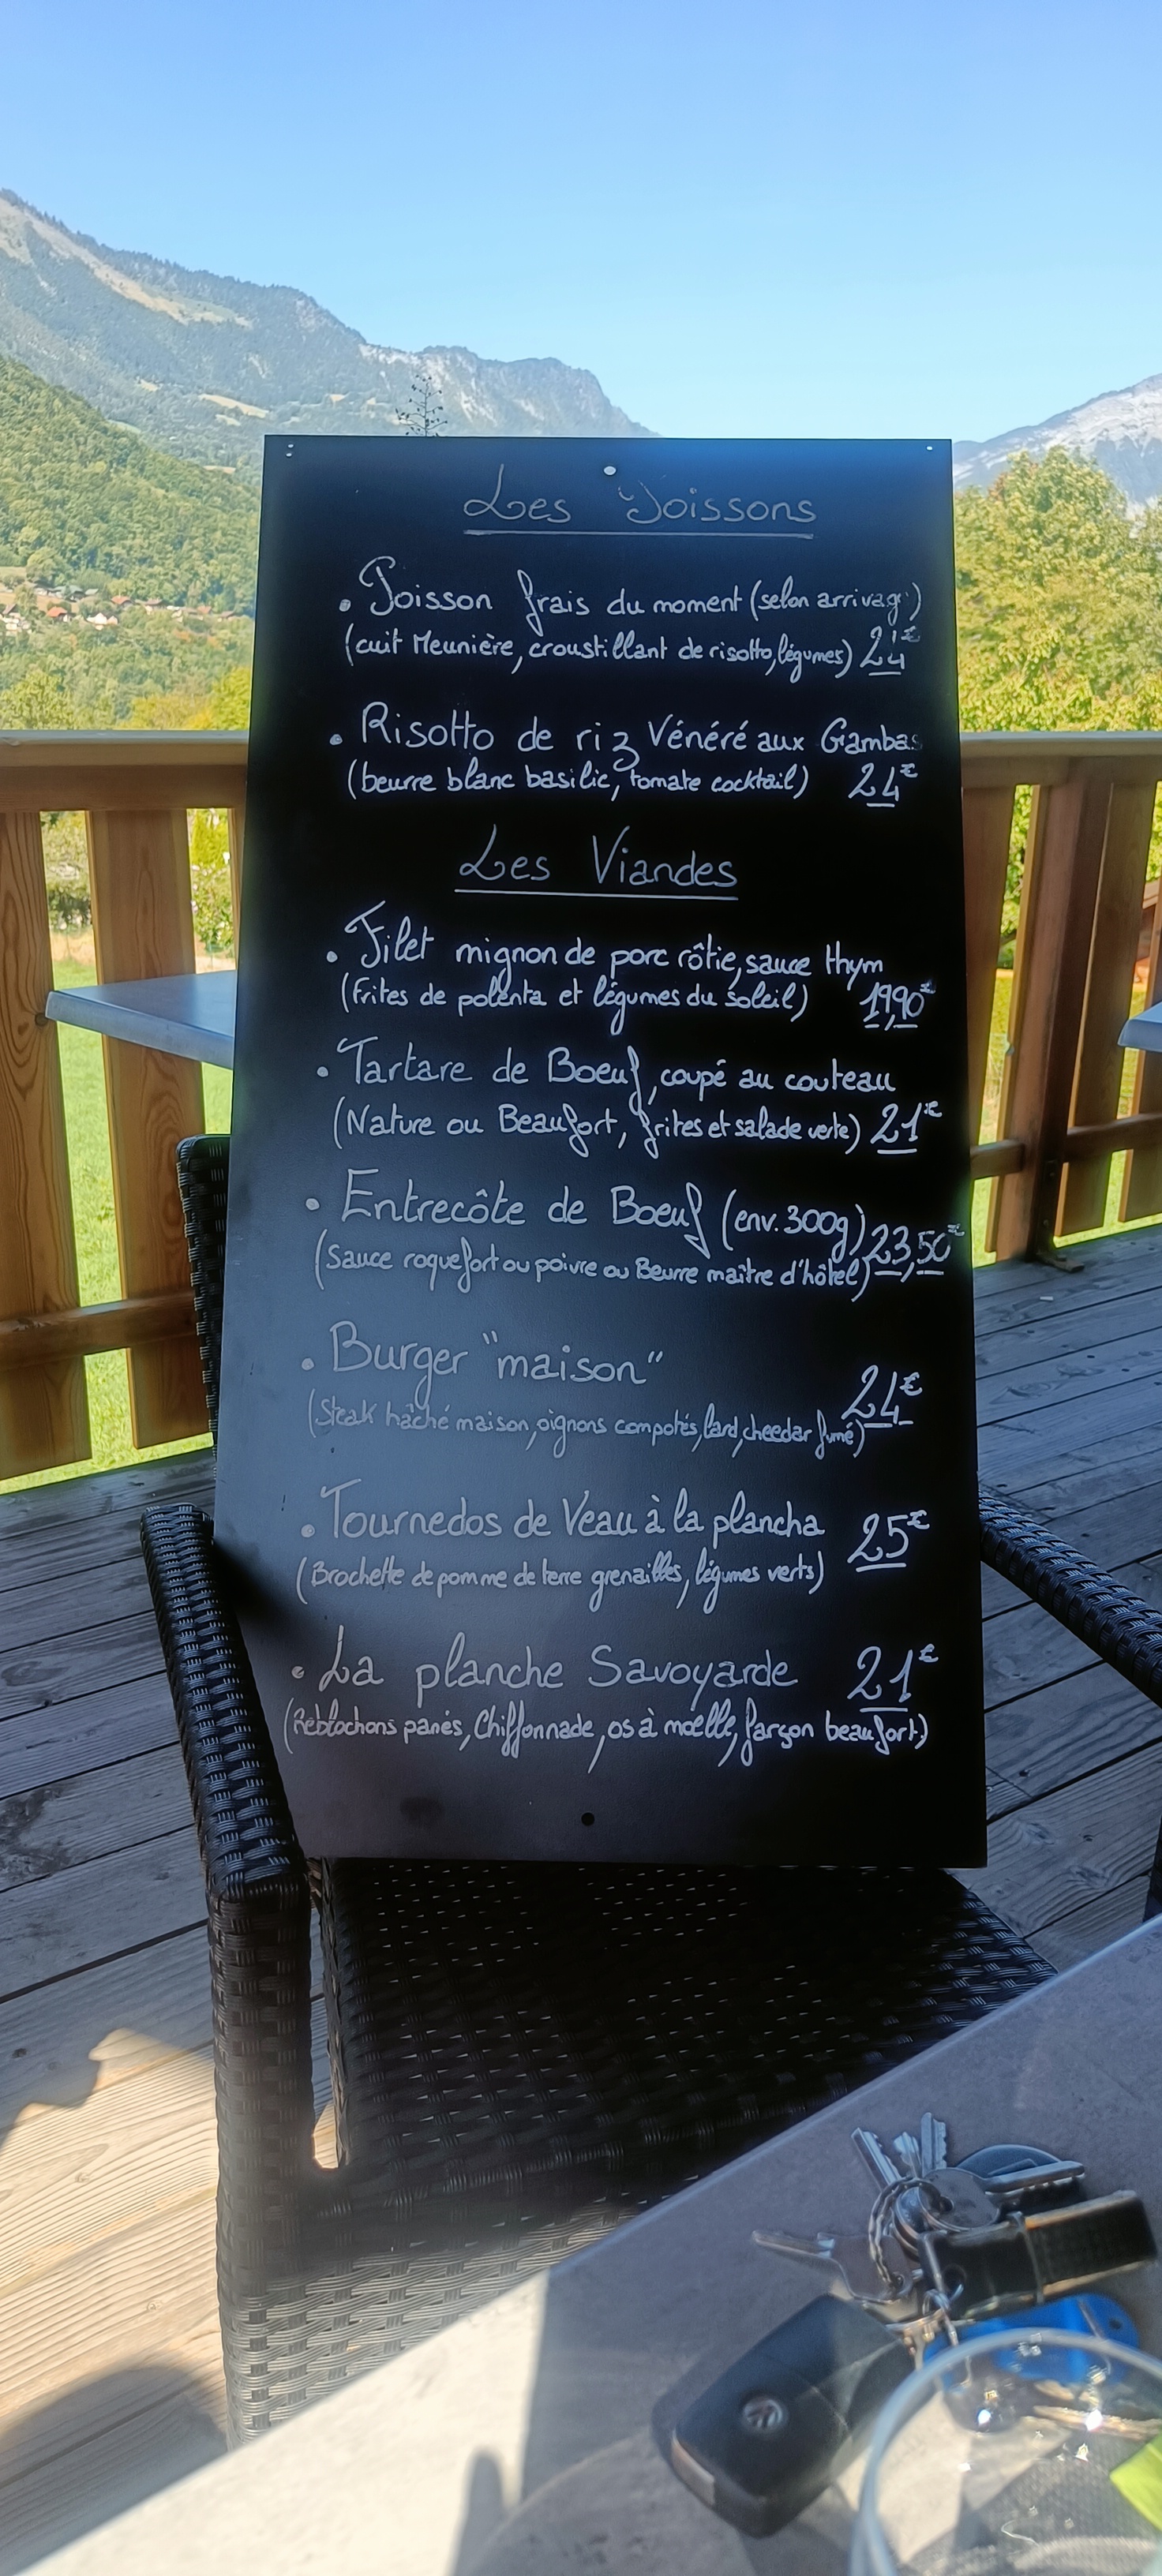 Les Poissons
• Poisson frais du moment (selon arrivage)
(cuit Meunière, croustillant de risotto, légumes) 24€
• Risotto de riz Vénéré aux Gambas
(beurre blanc basilic, tomate cocktail) 24€
Les Viandes
• Filet mignon de porc rôtie, sauce thym
(Frites de polenta et légumes du soleil) 19,90€
• Tartare de Boeuf, coupé au couteau
(Nature ou Beaufort, frites et salade verte) 21€
• Entrecôte de Boeuf (env. 300g) 23,50€
(Sauce roquefort ou poivre ou Beurre maître d'hôtel)
• Burger "maison" 24€
(Steak hâché maison, oignons compotés, lard, cheedar fumé)
• Tournedos de Veau à la plancha 25€
(Brochette de pomme de terre grenailles, légumes verts)
• La planche Savoyarde 21€
(Reblochons panés, Chiffonnade, os à moëlle, farçon beaufort)